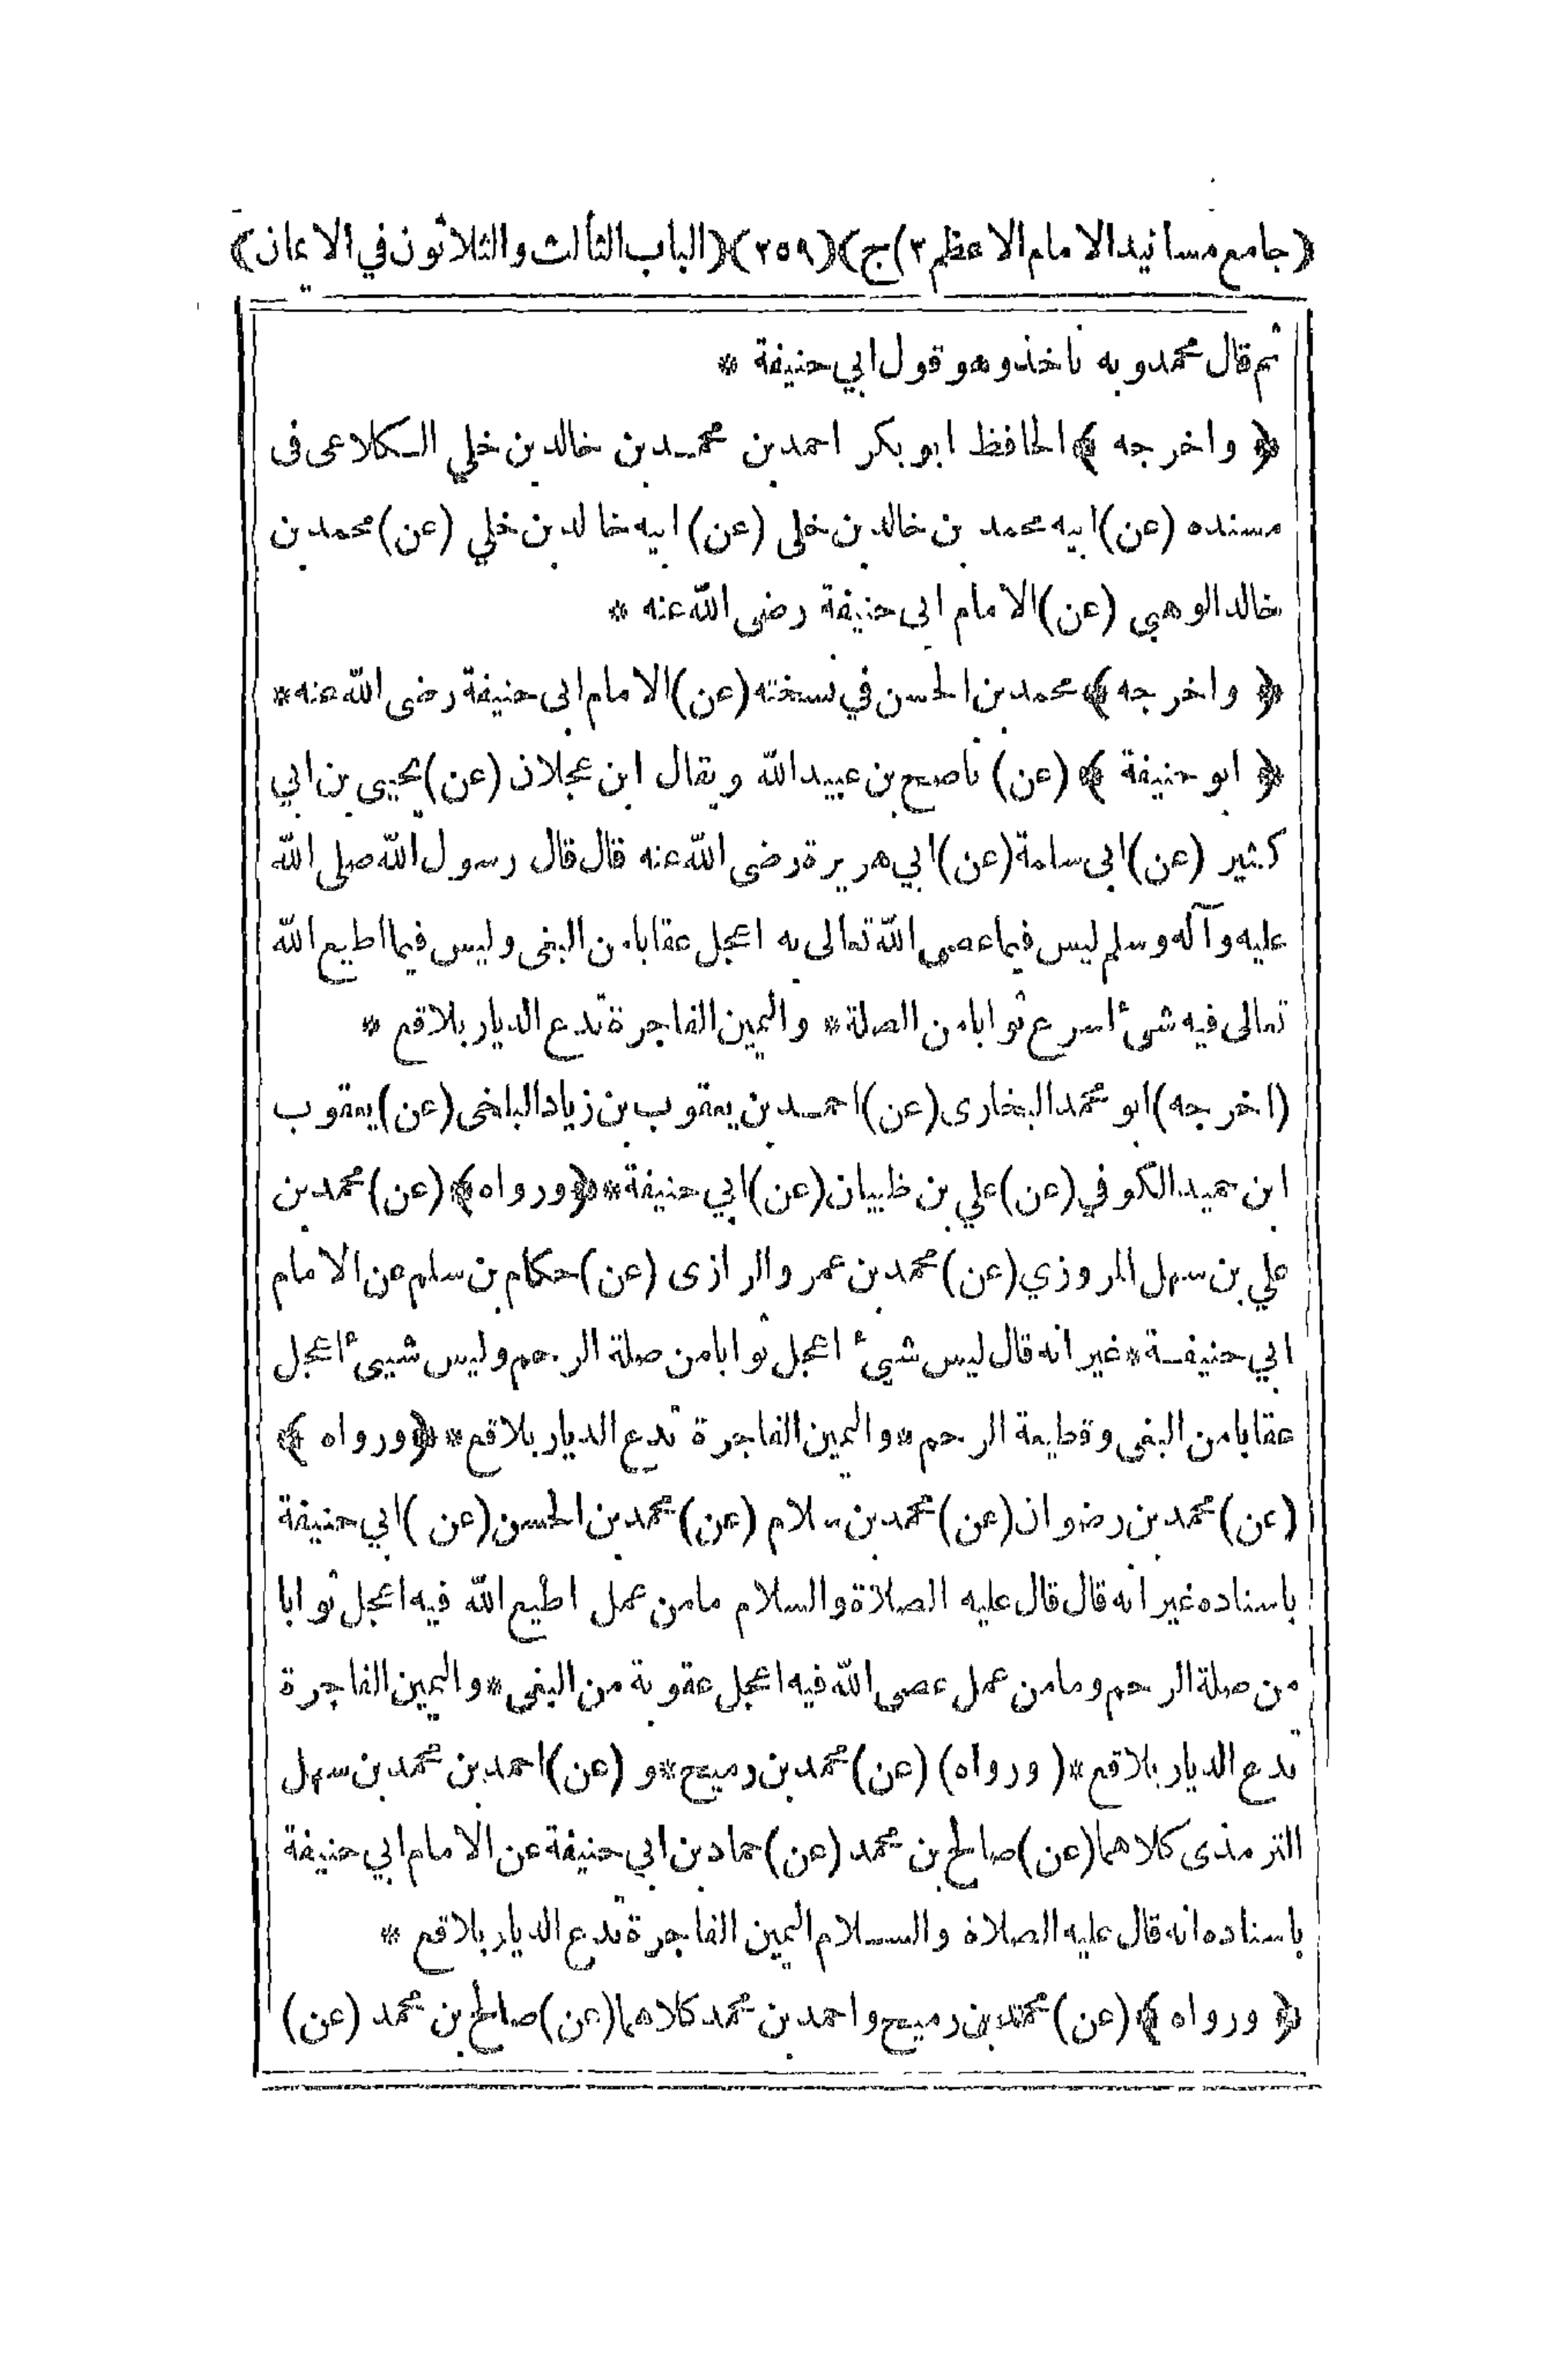 (جامع مسانيد الامام الاعظم ٣)ج)(٢٥٩)(الباب الثالث والثلاثون في الايمان)
ثم قال محمد وبه ناخذ وهو قول ابي حنيفة *
﴿ واخرجه ﴾ الحافظ ابو بكر احمد بن محمد بن خالد بن خلي الكلاعى فى
مسنده (عن) ابيه محمد بن خالد بن خلى (عن) ابيه خالد بن خلي (عن) محمد بن
خالد الوهبي (عن) الامام ابى حنيفة رضى الله عنه *
﴿ واخرجه ﴾ محمد بن الحسن في نسخته (عن) الامام ابى حنيفة رضى الله عنه *
﴿ ابو حنيفة ﴾ (عن) ناصح بن عبيد الله ويقال ابن عجلان (عن) يحيى بن ابي
كثير (عن) ابى سلمة (عن) ابي هريرة رضى الله عنه قال قال رسول الله صلى الله
عليه وآله وسلم ليس فيما عصى الله تعالى به اعجل عقابا من البغى وليس فيما اطيع الله
تعالى فيه شىٔ اسرع ثوابا من الصلة * واليمين الفاجرة تدع الديار بلاقع *
(اخرجه) ابو محمد البخارى (عن) احمد بن يعقوب بن زياد البلخى (عن) يعقوب
ابن حميد الكوفي (عن) علي بن ظبيان (عن) ابي حنيفة * ﴿ورواه﴾ (عن) محمد بن
علي بن سهل المروزي (عن) محمد بن عمرو الرازى (عن) حكام بن سلم عن الامام
ابي حنيفة * غير انه قال ليس شئ اعجل ثوابا من صلة الرحم وليس شيىٔ اعجل
عقابا من البغى وقطيعة الرحم * واليمين الفاجرة تدع الديار بلاقع * ﴿ورواه ﴾
(عن) محمد بن رضوان (عن) محمد بن سلام (عن) محمد بن الحسن (عن ) ابي حنيفة
باسناده غير انه قال قال عليه الصلاة والسلام ما من عمل اطيع الله فيه اعجل ثوابا
من صلة الرحم وما من عمل عصى الله فيه اعجل عقوبة من البغى * واليمين الفاجرة
تدع الديار بلاقع * ( ورواه) (عن) محمد بن رميح * و (عن) احمد بن محمد بن سهل
الترمذى كلاهما (عن) صالح بن محمد (عن) حماد بن ابي حنيفة عن الامام ابي حنيفة
باسناده انه قال عليه الصلاة والسلام اليمين الفاجرة تدع الديار بلاقع *
﴿ ورواه ﴾ (عن) محمد بن رميح واحمد بن محمد كلاهما (عن) صالح بن محمد (عن)